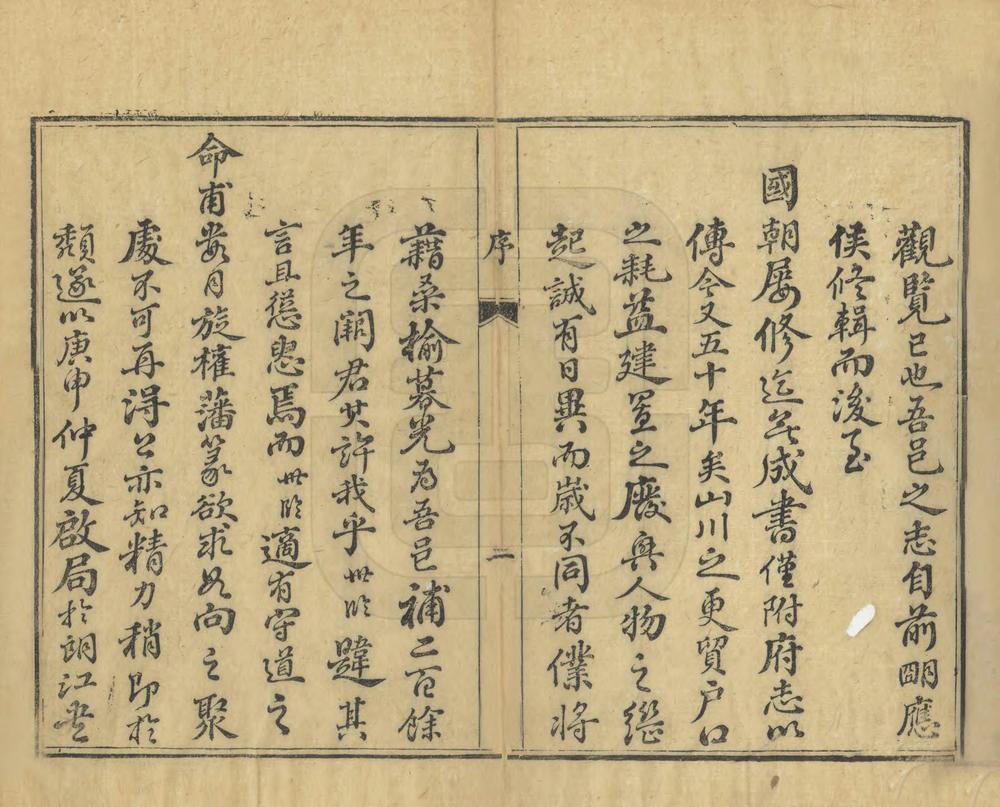 觀覽已也吾邑之志自前明應
侯修輯而後至
國朝屢修迄無成書僅附府志以
傳今又五十年矣山川之更貿戶口
之耗益建置之廢興人物之繼
起誠有日異而歲不同者僕將
序
二
藉桑榆暮光為吾邑補二百餘
年之闕君其許我乎世韙其
言且慫恿焉而世適有守道之
命甫數月旋權藩篆欲求如向之聚
處不可再得公亦知精力稍即於
頹遂以庚申仲夏啟局於朗江書